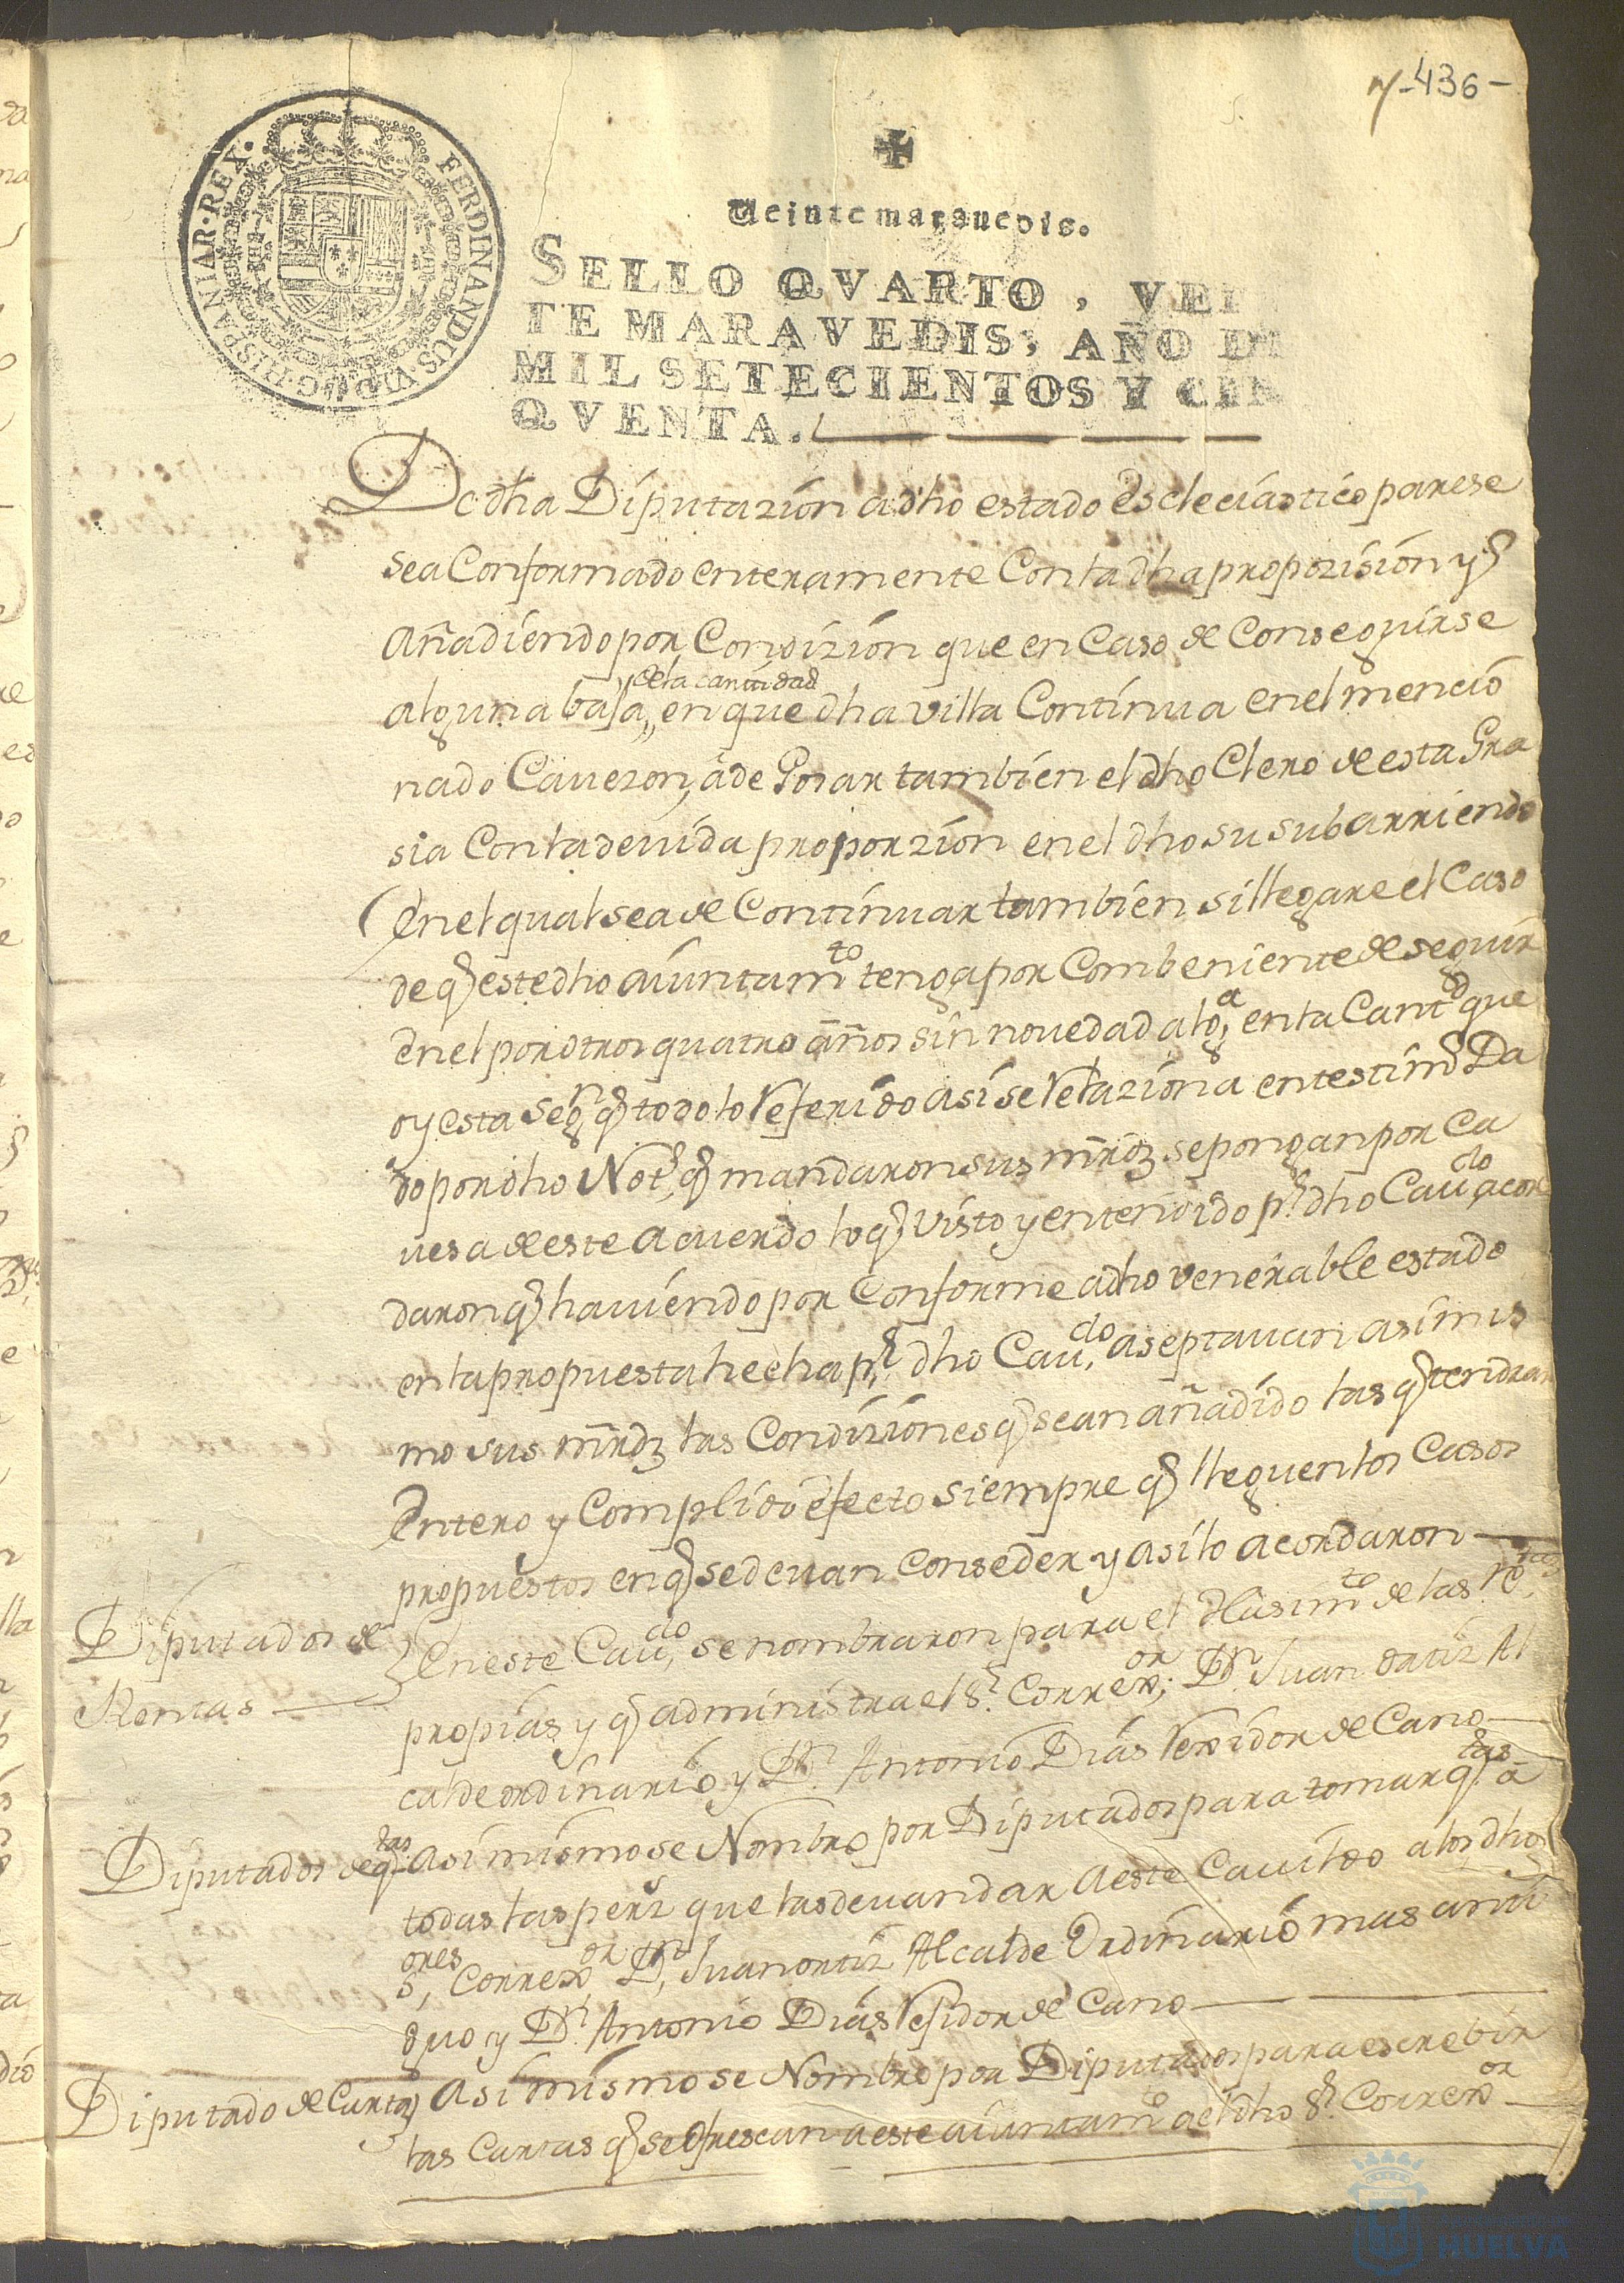 7-436-
FERDINANDUS·VI·D·G·HISPANIAR·REX·
Veinte maravedis.
SELLO QVARTO, VEI
TE MARAVEDIS, AÑO DE
MIL SETECIENTOS Y CIN
QVENTA.
De dha Diputazion a dho estado esclesiastico parese
sea Conformado enteramente Con la dha propozision y
Añadiendo por Condizion que en Caso de Conseguirse
alguna baja, en que dha villa Continua en el mencio
de la cantidad
nado Cavezon, à de Gozar tambien el dho Clero de esta Gra
sia Con la devida proporzion en el dho su subarriendo
(En el qual sea de Continuar tambien si llegare el Caso
de q este dho aiuntamto tenga por Combeniente de seguir
en el por otros quatro años sin novedad alga, en la Cantd que
oy esta segn q todo lo Referido asi se Relaziona en testimo Da
do por dho Noto, q mandaron sus mrdz se pongan por Ca
vesa de este acuerdo lo q visto y entendido pr dho Cavdo acor
daron q haviendo por Conforme a dho venerable estado
en la propuesta hecha pr dho Cavdo, aseptavan asimis
mo sus mrdz las Condiziones q sean añadido las q tendran
Entero y Complido efecto siempre q lleguen los Casos
propuestos en q se devan Conseder y asi lo acordaron
Diputados de
Rentas
En este Cavdo, se nombraron para el Hasimto de las Rtas
propias y q administra el Sr. Correxor, Dn Juan ortiz Al
calde ordinario y Dn. Antonio Dias Rexidor de Cano
Diputados de qtas
Asi mismo se Nombro por Diputados para tomar qtas a
todas las persz que las devan dar a este Cavildo a los dhos
Sores, Correxor Dn, Juan ortiz Alcalde Ordinario mas anti
guo y Dn. Antonio Dias Rejidor de Cano
Diputado de Cartas
Asi mismo se Nombro por Diputados para escrebir
las Cartas q se Ofrescan a este aiuntamto a el dho Sr. Correxor
HUELVA